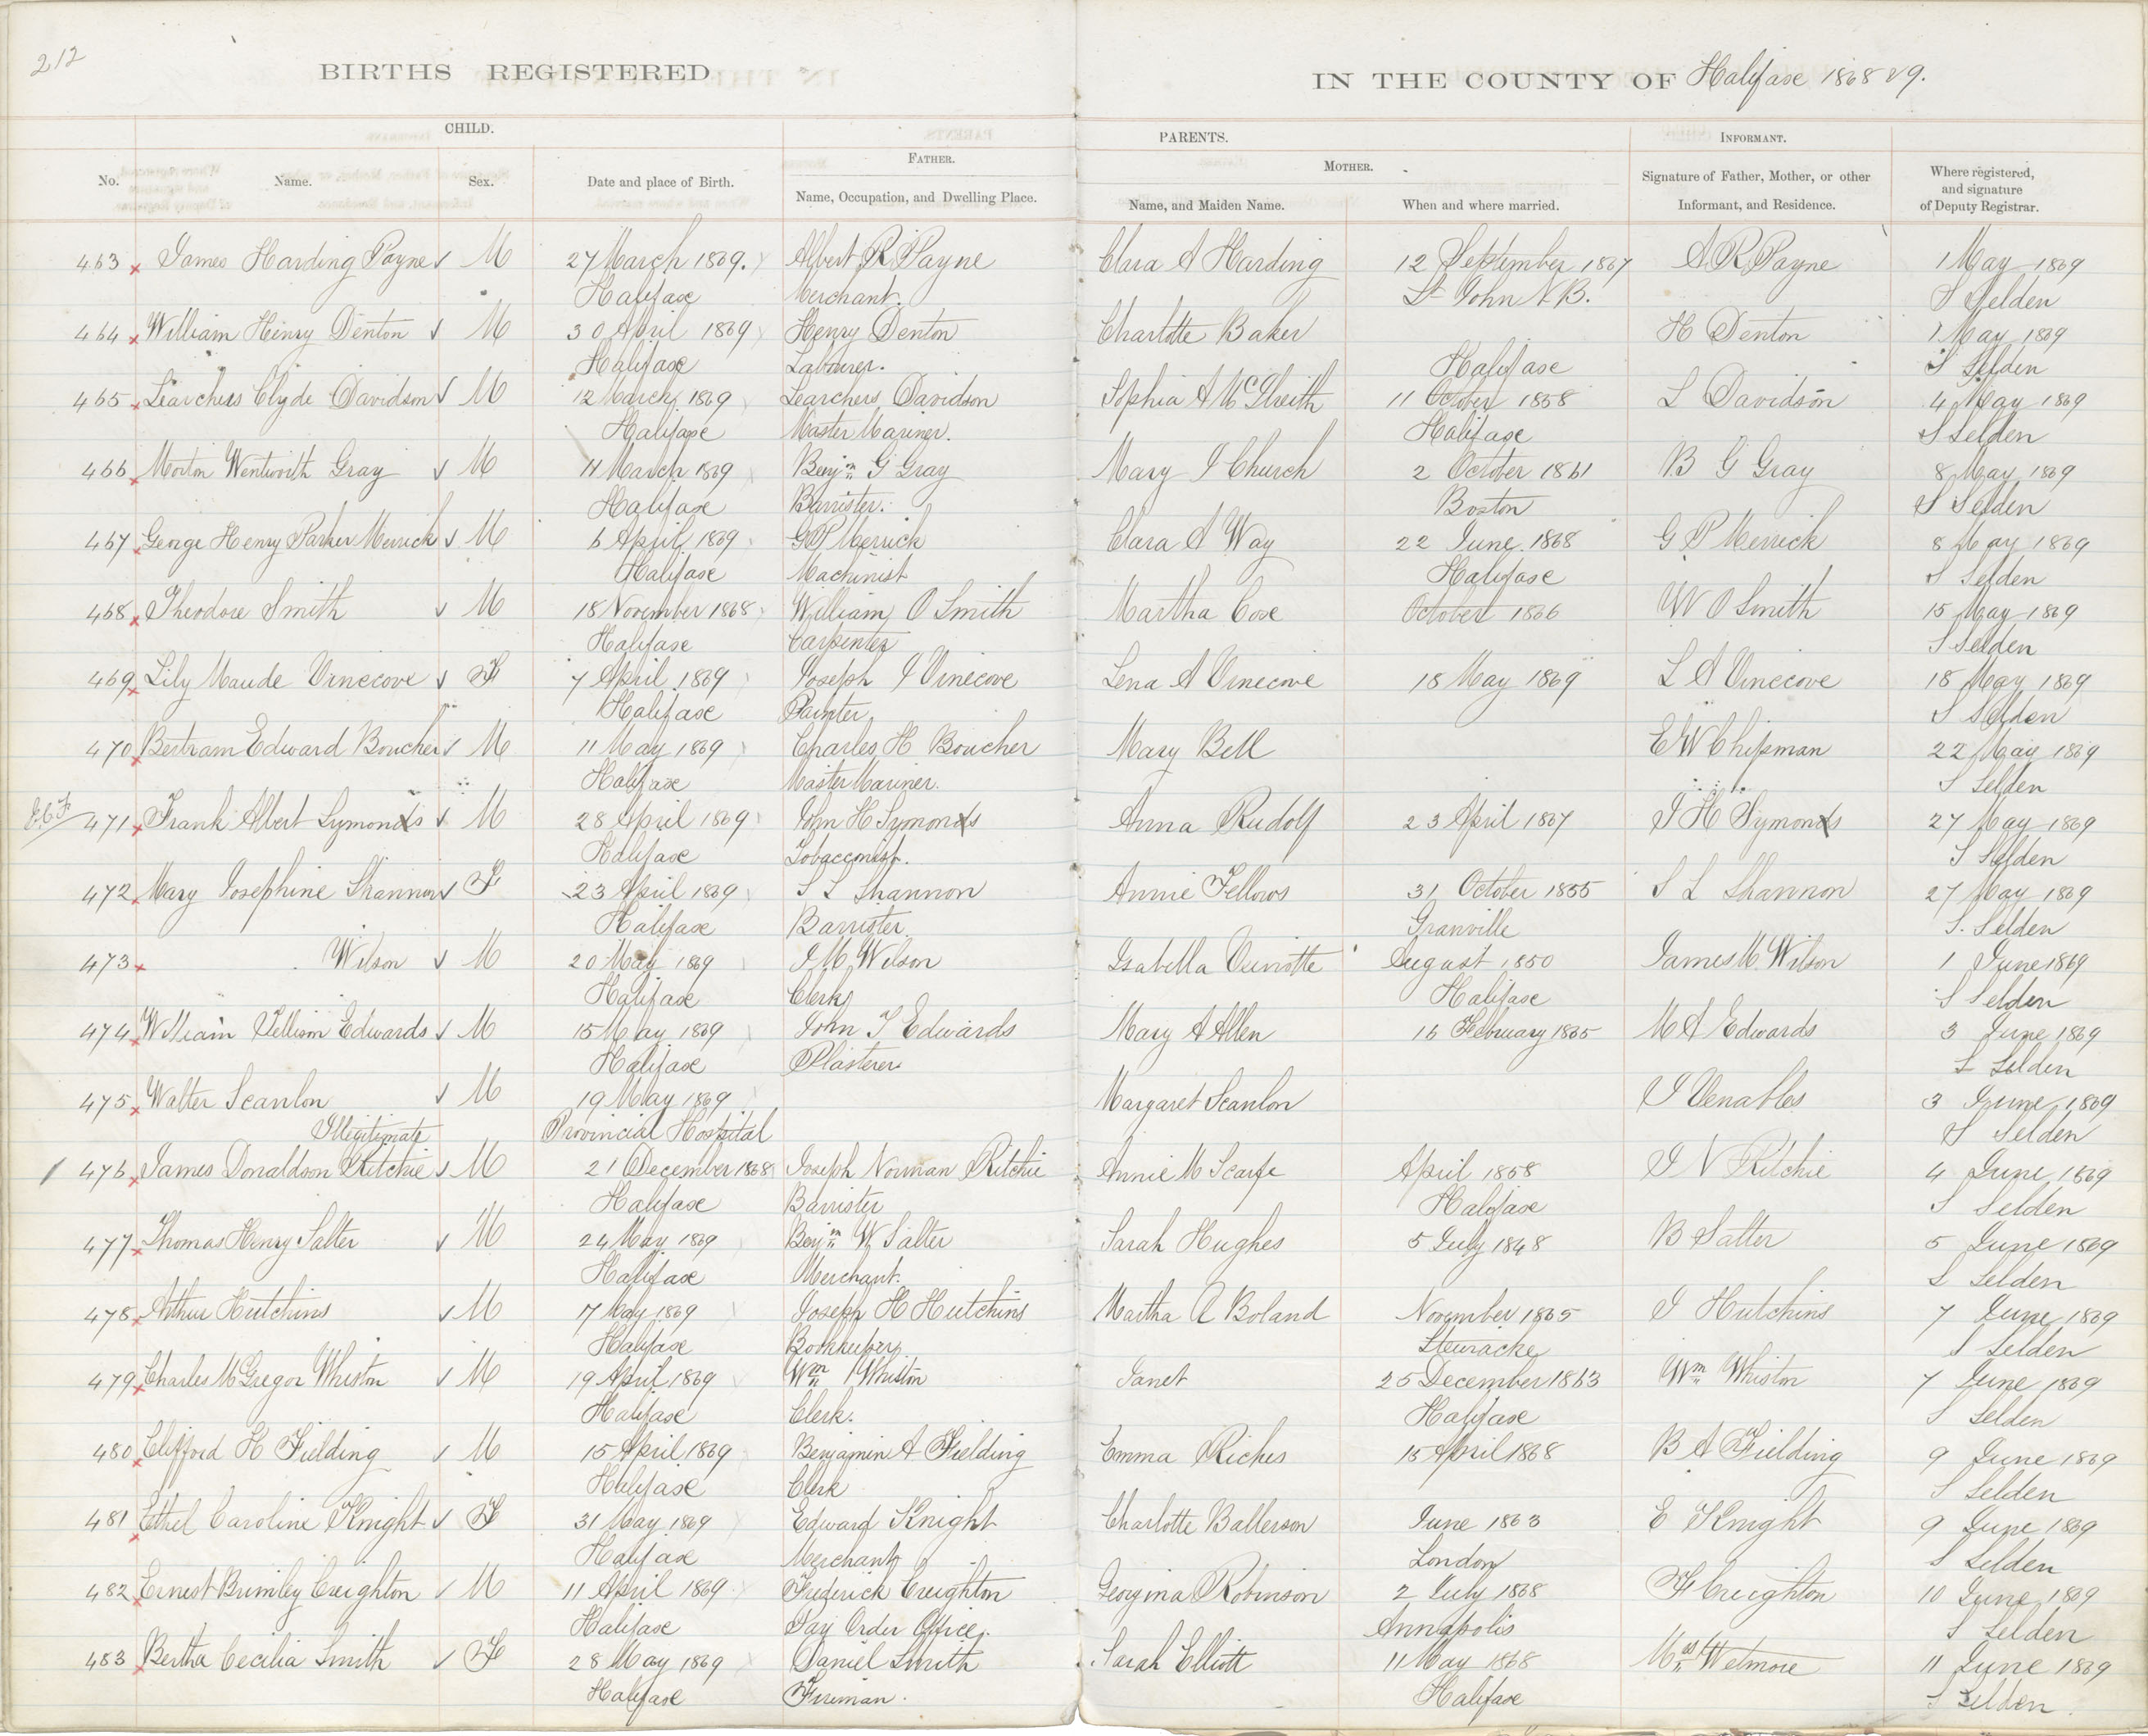 212
BIRTHS REGISTERED IN THE COUNTY OF Halifax 1868 & 9.
CHILD. PARENTS. INFORMANT.
FATHER. MOTHER.
No. Name. Sex. Date and place of Birth. Name, Occupation, and Dwelling Place. Name, and Maiden Name. When and where married. Signature of Father, Mother, or other Informant, and Residence. Where registered, and signature of Deputy Registrar.
463 James Harding Payne M 27 March 1869. Albert R Payne Clara A Harding 12 September 1867 A R Payne 1 May 1869
Halifax Merchant. St John N B. S Selden
464 William Henry Denton M 30 April 1869 Henry Denton Charlotte Baker H Denton 1 May 1869
Halifax Labourer. Halifax S Selden
465 Learchus Clyde Davidson M 12 March 1869 Learchus Davidson Sophia A 11 October 1858 L Davidson 4 May 1869
Halifax Master Mariner. Halifax S Selden
466 Morton Wentworth Gray M 11 March 1869 Benjn G Gray Mary I Church 2 October 1861 B G Gray 8 May 1869
Halifax Barrister. Boston S Selden
467 George Henry Parker Merrick M 6 April 1869 G P Merrick Clara A Way 22 June 1868 G P Merrick 8 May 1869
Halifax Machinist Halifax S Selden
468 Theodore Smith M 18 November 1868 William O Smith Martha Coxe October 1866 W O Smith 15 May 1869
Halifax Carpenter S Selden
469 Lily Maude Vinecove F 7 April 1869 Joseph J Vinecove Lena A Vinecove 18 May 1869 L A Vinecove 18 May 1869
Halifax Painter S Selden
470 Bertram Edward Boucher M 11 May 1869 Charles H Boucher Mary Bell E W Chipman 22 May 1869
Halifax Master Mariner. S Selden
471 Frank Albert Symonds M 28 April 1869 John H Symonds Anna Rudolf 23 April 1867 J H Symonds 27 May 1869
Halifax Tobacconist. S Selden
472 Mary Josephine Shannon F 23 April 1869 S L Shannon Annie Fellows 31 October 1855 S L Shannon 27 May 1869
Halifax Barrister. Granville S. Selden
473 Wilson M 20 May 1869 J M Wilson Isabella August 1850 James M. Wilson 1 June 1869
Halifax Clerk Halifax S Selden
474 William Edwards M 15 May 1869 John T Edwards Mary A Allen 16 February 1865 M A Edwards 3 June 1869
Halifax Plasterer S Selden
475 Walter Scanlon M 19 May 1869 Margaret Scanlon J Venables 3 June 1869
Illegitimate Provincial Hospital S Selden
476 James Donaldson Ritchie M 21 December 1868 Joseph Norman Ritchie Annie M Scarfe April 1858 J N Ritchie 4 June 1869
Halifax Barrister Halifax S Selden
477 Thomas Henry Salter M 24 May 1869 Benjn W Salter Sarah Hughes 5 July 1848 B Salter 5 June 1869
Halifax Merchant. S Selden
478 Arthur Hutchins M 17 May 1869 Joseph H Hutchins Martha A Boland November 1865 J Hutchins 7 June 1869
Halifax Bookkeeper Stewiacke S Selden
479 Charles McGregor Whiston M 19 April 1869 Wm Whiston Janet 25 December 1863 Wm Whiston 7 June 1869
Halifax Clerk. Halifax S Selden
480 Clifford H Fielding M 15 April 1869 Benjamin A Fielding Emma Riches 15 April 1868 B A Fielding 9 June 1869
Halifax Clerk S Selden
481 Ethel Caroline Knight F 31 May 1869 Edward Knight Charlotte Ballerson June 1863 E Knight 9 June 1869
Halifax Merchant London S Selden
482 Ernest Brimley Creighton M 11 April 1869 Frederick Creighton Georgina Robinson 2 July 1868 F Creighton 10 June 1869
Halifax Pay Order Office. Annapolis S Selden
483 Bertha Cecilia Smith F 28 May 1869 Daniel Smith Sarah Elliott 11 May 1868 Mrs Wetmore 11 June 1869
Halifax Fireman. Halifax S Selden.